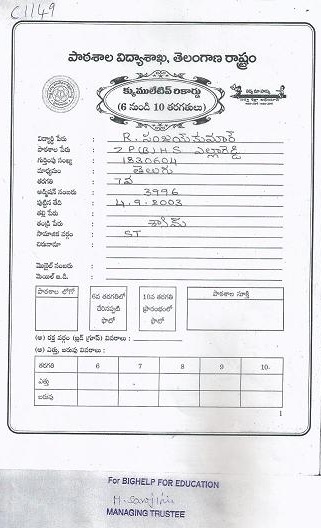 C1149
పాఠశాల విద్యాశాఖ, తెలంగాణ రాష్ట్రం
క్యుములేటివ్ రికార్డు
(6 నుండి 10 తరగతులు)
విద్యార్థి పేరు : R. సంజయ్ కుమార్
పాఠశాల పేరు : Z P (B) H S ఎల్లారెడ్డి
గుర్తింపు సంఖ్య : 1830604
మాధ్యమం : తెలుగు
తరగతి : 7వ
అడ్మిషన్ నంబరు : 3996
పుట్టిన తేది : 4.9.2003
తల్లి పేరు :
తండ్రి పేరు :
సామాజిక వర్గం : ST
చిరునామా :
మొబైల్ నంబరు :
మెయిల్ ఐ.డి. :
పాఠశాల లోగో
6వ తరగతిలో చేరినప్పటి ఫొటో
10వ తరగతి ప్రారంభంలో ఫొటో
పాఠశాల సూక్తి
(అ) రక్త వర్గం (బ్లడ్ గ్రూప్) వివరాలు :
(ఆ) ఎత్తు, బరువు వివరాలు :
తరగతి 6 7 8 9 10
ఎత్తు
బరువు
1
For BIGHELP FOR EDUCATION
MANAGING TRUSTEE